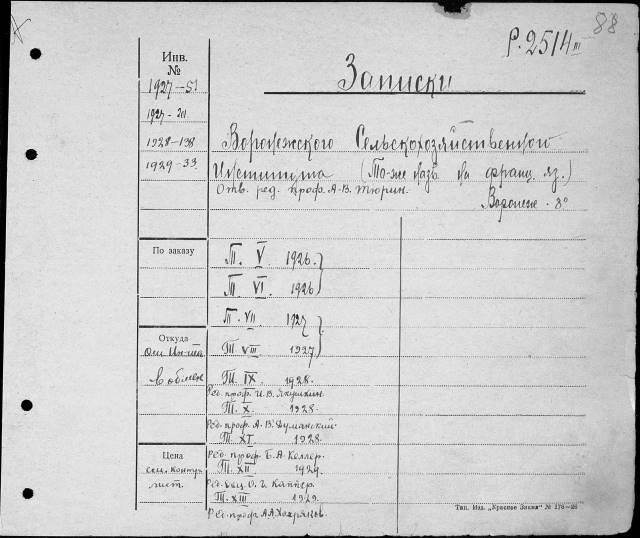 88
P.2514 III
Инв.
№
Записки
1927-51
1927-211
1928-198
1929-33
Воронежского Сельскохозяйственного
Института (То-же назв. на франц. яз.)
Отв. ред. проф. А.В. Тюрин.
Воронеж. 8°
По заказу
Т. V 1926.
Т. VI. 1926
Т. VII. 1927
Откуда
От Ин-та
Т. VIII 1927
в обмен
Т. IX. 1928.
Ред. проф. И.В. Якушкин.
Т. X. 1928.
Ред. проф. А.В. Думанский
Т. XI. 1928.
Цена
Ред. проф. Б.А. Келлер.
Т. XII. 1929.
лист.
Ред. доц. О.Г. Каппер.
Т. XIII 1929.
Ред. проф. А.А. Хохряков.
Тип. Изд. „Красное Знамя" № 176-26